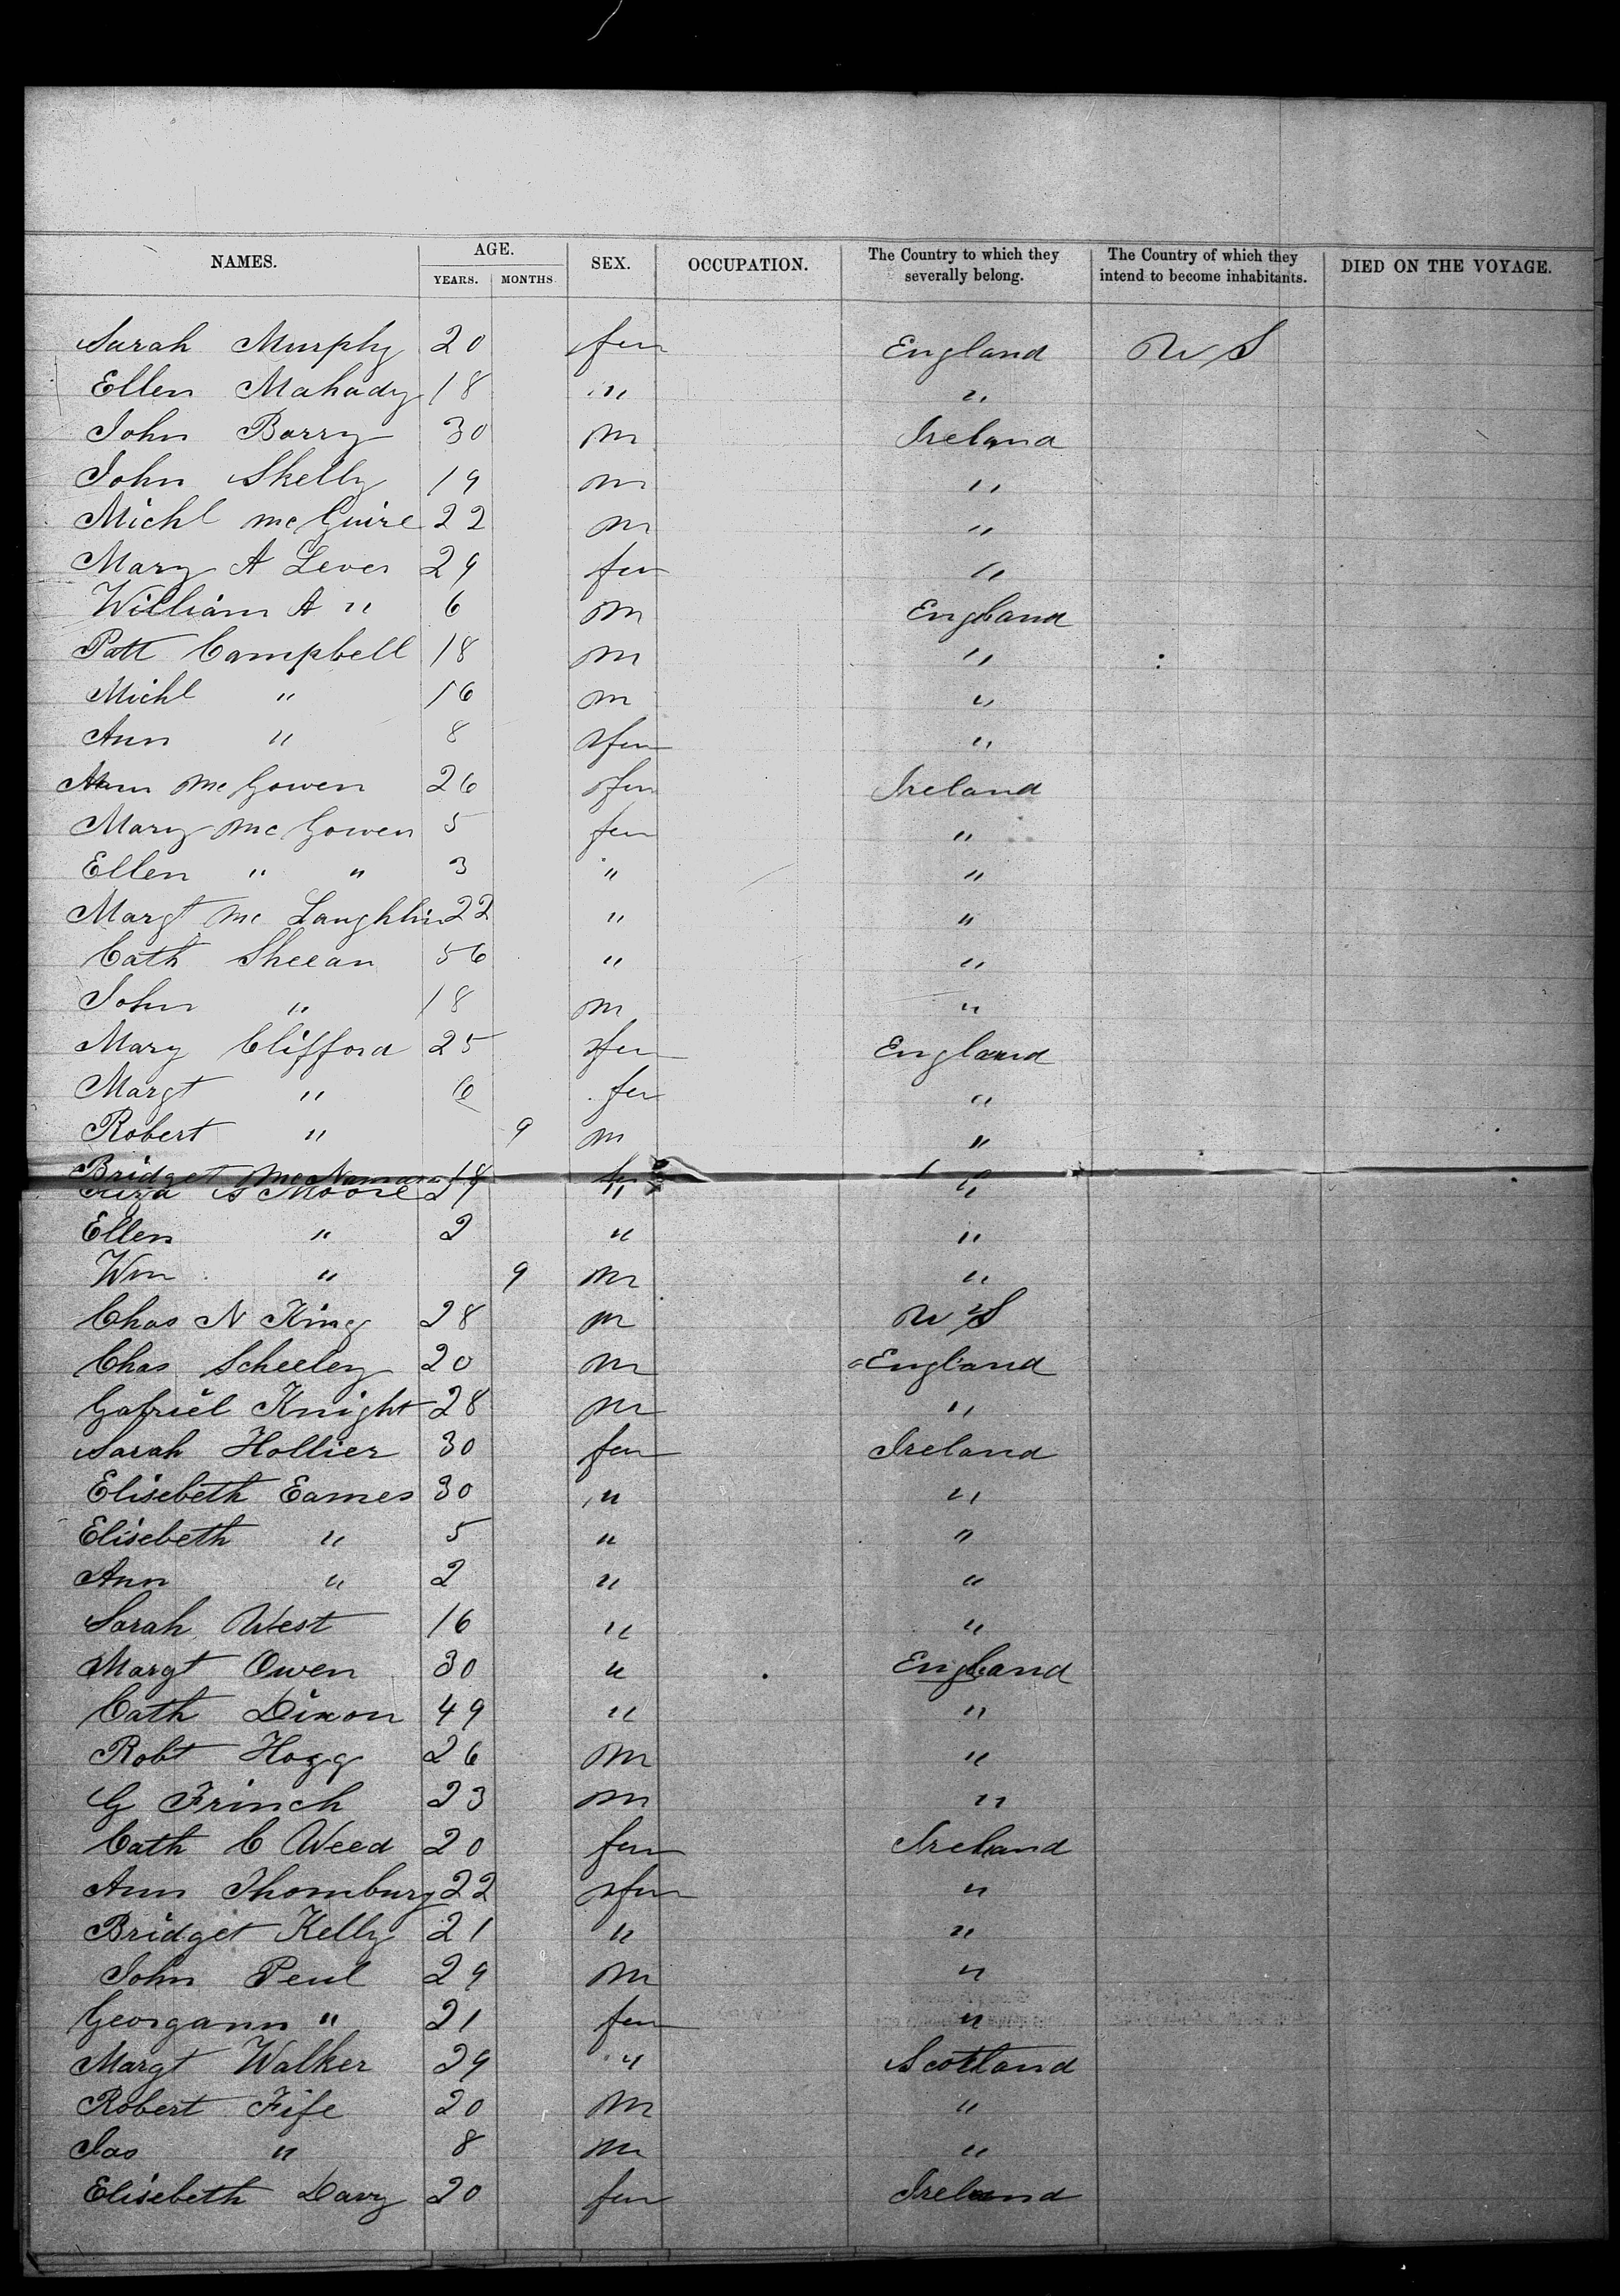 NAMES. AGE. SEX. OCCUPATION. The Country to which they severally belong. The Country of which they intend to become inhabitants. DIED ON THE VOYAGE.
YEARS. MONTHS
Sarah Murphy 20 fem England U S
Ellen Mahady 18 " "
John Barry 30 m Ireland
John Skelly 19 m "
Michl McGuire 22 m "
Mary A Lever 29 fem "
William A " 6 m England
Patt Campbell 18 m "
Michl " 16 m "
Ann " 8 fem "
Ann McGowen 26 fem Ireland
Mary McGowen 5 fem "
Ellen " " 3 " "
Margt Mc Laughlin 22 " "
Cath Sheean 56 " "
John " 18 m "
Mary Clifford 25 fem England
Margt " 6 fem "
Robert " 9 m "
Bridget McNamara 18
Moore "
Ellen " 2 " "
Wm " 9 m "
Chas N King 28 m U S
Chas Scheeley 20 m England
Gabriel Knight 28 m "
Sarah Hollier 30 fem Ireland
Elisebeth Eames 30 " "
Elisebeth " 5 " "
Ann " 2 " "
Sarah West 16 " "
Margt Owen 30 " England
Cath Dixon 49 " "
Robt Hogg 26 m "
G Frinch 23 m "
Cath C Weed 20 fem Ireland
Ann Thornbury 22 fem "
Bridget Kelly 21 " "
John Peul 29 m "
Georgann " 21 fem "
Margt Walker 29 " Scotland
Robert Fife 20 m "
Jas " 8 m "
Elisebeth Davy 20 fem Ireland